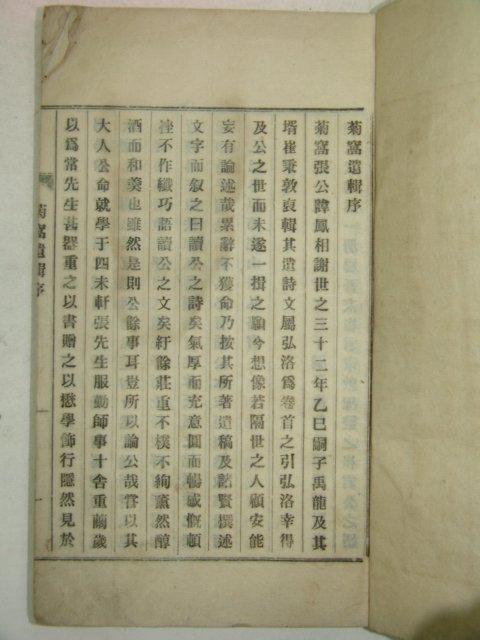 菊窩遺輯序
菊窩張公諱鳳相謝世之三十二年乙巳嗣子禹龍及其
壻崔秉敦裒輯其遺詩文屬弘洛爲卷首之引弘洛幸得
及公之世而未遂一掃之願今想像若隔世之人顧安能
妄有論述哉累辭不獲命乃按其所著遺稿及諸賢撰述
文字而叙之曰讀公之詩矣氣厚而充意圓而暢感慨頓
挫不作纖巧語讀公之文矣紆餘莊重不樸不絢薰然醇
酒而和羹也雖然是則公餘事耳豈所以論公哉嘗以其
大人公命就學于四未軒張先生服勤師事十舍重繭歲
以爲常先生甚器重之以書贈之以懋學飾行隱然見於
菊窩遺輯序